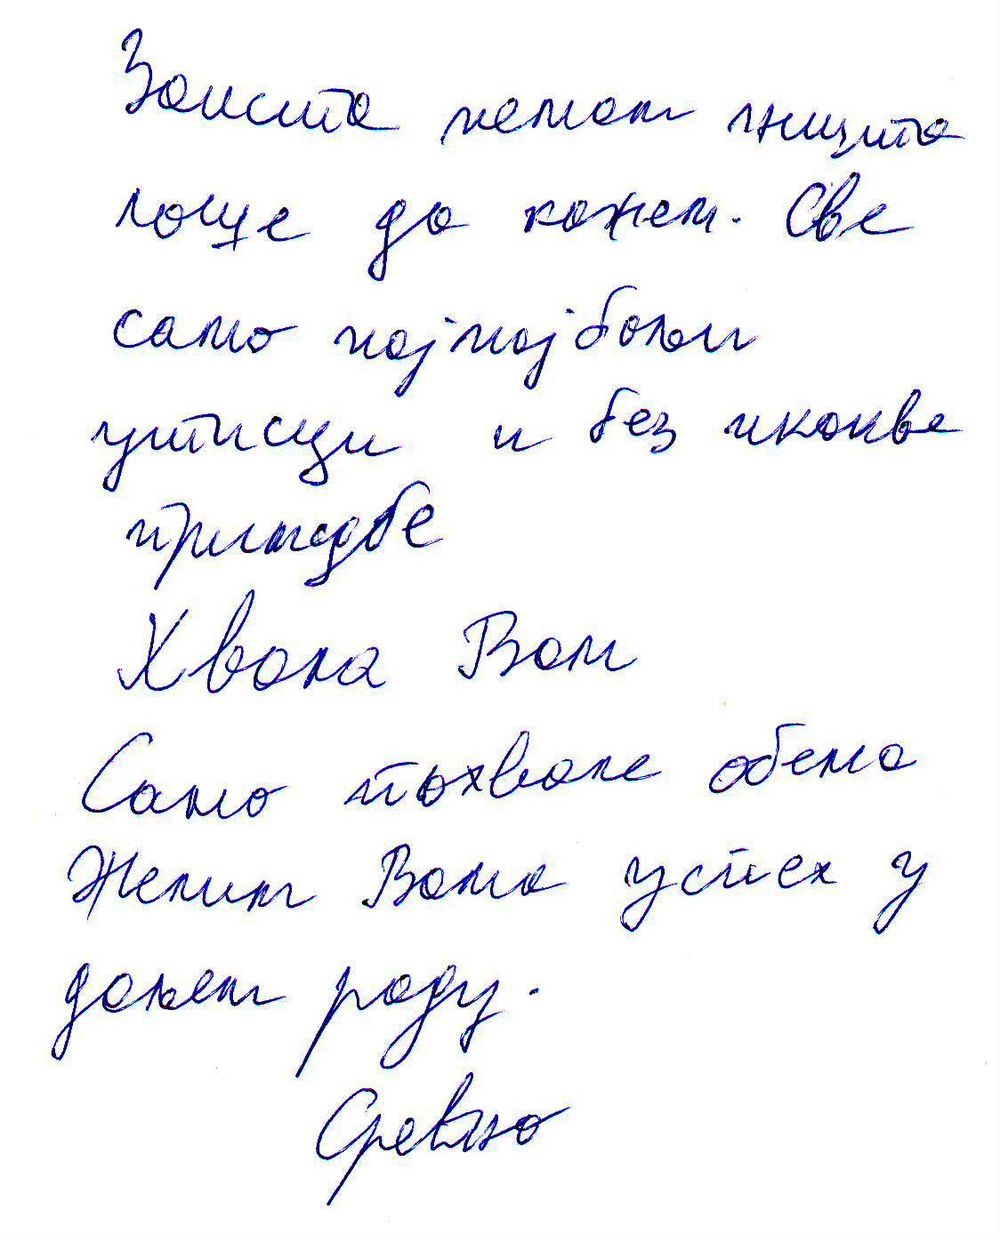 Заиста немам ништа
лоше да кажем. Све
само најнајбољи
утисци и без икакве
примједбе
Хвала Вам
Само похвале обема
Желим Вама успех у
даљем раду.